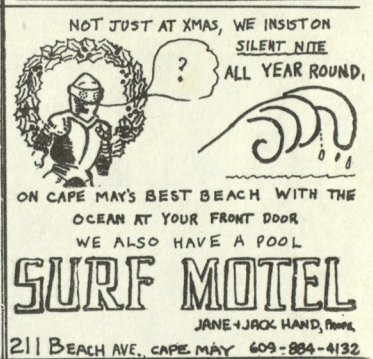 NOT JUST AT XMAS, WE INSIST ON
SILENT NITE
?
ALL YEAR ROUND,
ON CAPE MAY'S BEST BEACH WITH THE
OCEAN AT YOUR FRONT DOOR
WE ALSO HAVE A POOL
SURF MOTEL
JANE + JACK HAND, Props.
211 BEACH AVE., CAPE MAY 609-884-4132